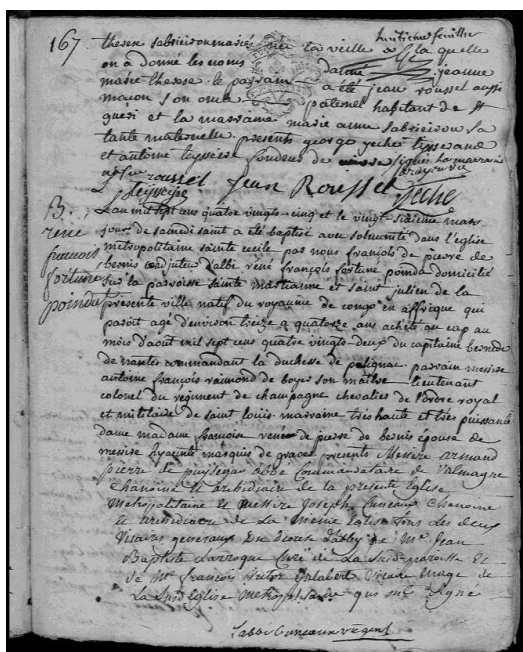 huitieme feuillet
167
therese sabrieison mariés née la veille a laquelle
on a donné les noms jeanne
marie therese. le parrain a été jean roussel aussi
macon son oncle paternel habitant de st
et la marraine marie anne sabrieison sa
tante maternelle. presents george yeche tisserand
et antoine teysseire fondeur de signés la marraine
roussel Jean Roussel Yeche
teysseire
B. L'an mil sept cens quatre vingts-cinq et le vingt-sixieme mars
rené jour de samedi saint a été baptisé avec solemnité dans l'eglise
francois metropolitaine sainte cecile par nous françois de pierre de
fortuné bernis coadjuteur d'albi réné françois fortuné poinda domicilié
poinda sur la paroisse sainte martianne et saint julien de la
presente ville natif du royaume de congo en affrique qui
paroit agé d'environ treize a quatorze ans acheté au cap au
mois d'aout mil sept cens quatre vingts-deux du capitaine
de nantes commandant la duchesse de polignac parrain messire
antoine françois raimond de boyer son maître lieutenant
colonel du regiment de champagne chevalier de l'ordre royal
et militaire de saint louis marraine tres haute et tres puissante
dame madame françoise renée de pierre de bernis épouse de
messire hyacinte marquis de grave presents Messire armand
pierre de puysegur abbé Commandataire de Valmagne
Chanoine et archidiacre de la presente Eglise
Metropolitaine et Messire Joseph Cuneaux Chanoine
et archidiacre de La Meme Eglise tous les deux
Vicaires generaux du diocese d'alby de Mr. Jean
Baptiste Larroque Curé de La susd. paroisse et
de Mr. François Victor Vicaire
La susd. Eglise Metropolitaine qui ont signé
l'abbé Cuneaux vic. gen.